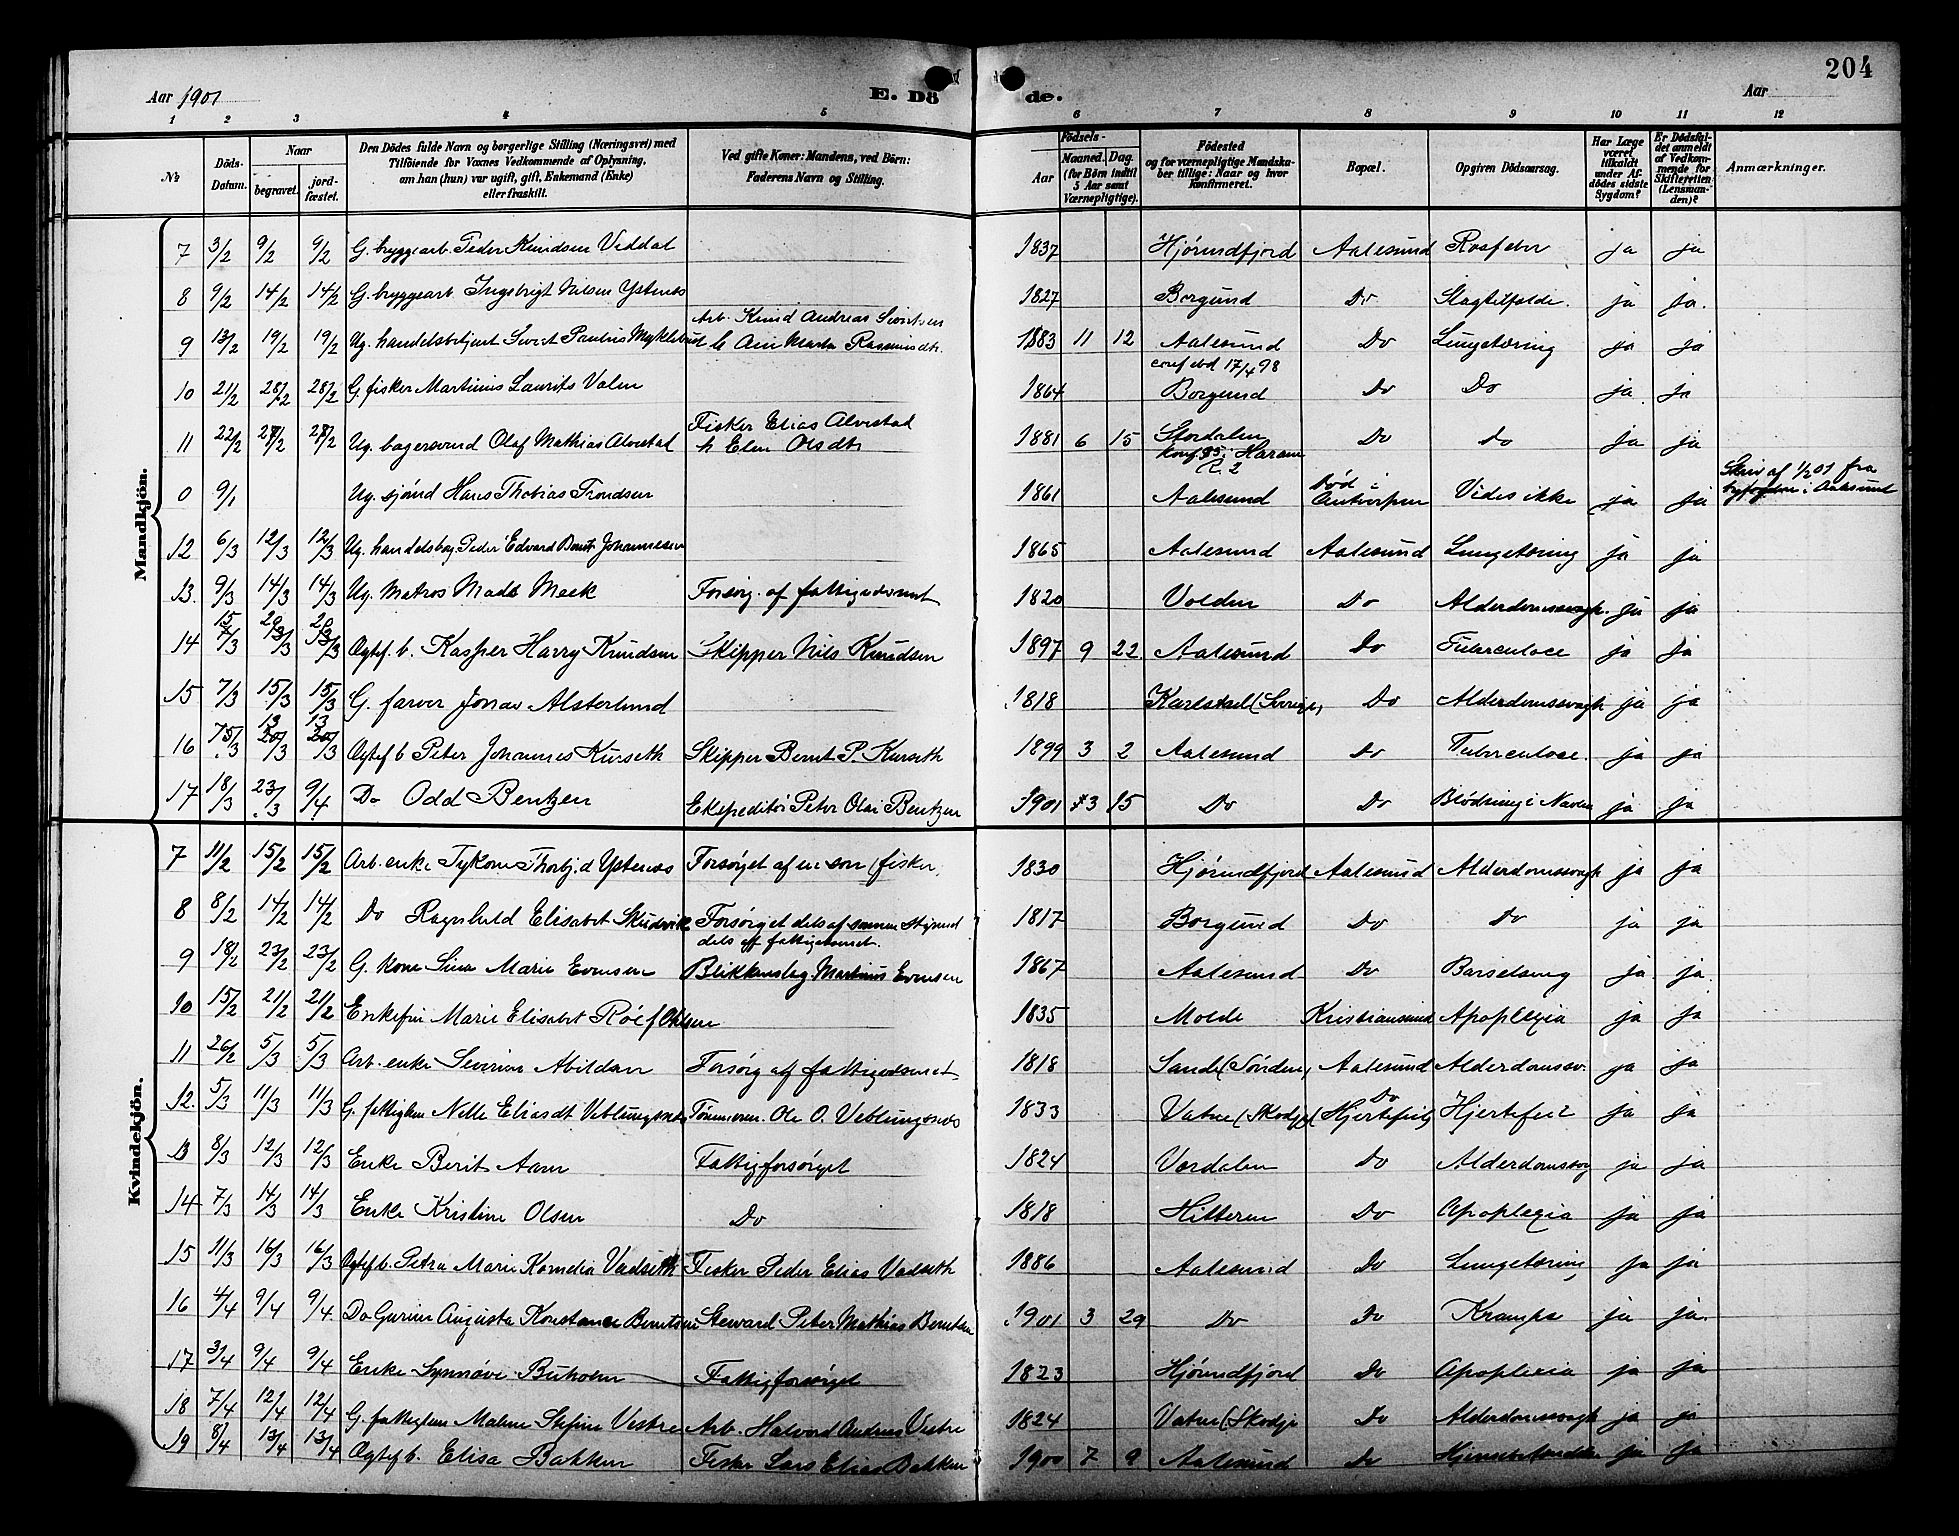 204
Aar 1901
E. Dö de.
Aar
1 2 3 4 5 6 7 8 9 10 11 12
№
Döds-Datum.
Naar
begravet.
jord-fæstet.
Den Dödes fulde Navn og borgerlige Stilling (Næringsvei) med
Tilföiende for Voxnes Vedkommende af Oplysning,
om han (hun) var ugift, gift, Enkemand (Enke)
eller fraskilt.
Ved gifte Koner: Mandens, ved Börn:
Faderens Navn og Stilling.
Födsels-
Aar
Maaned. Dag.
(for Börn indtil
5 Aar samt
Værnepligtige).
Födested
og for værnepligtige Mandska-
ber tillige: Naar og hvor
konfirmeret.
Bopæl.
Opgiven Dödsaarsag.
Har Læge
været
tilkaldt
under Af-
dödes sidste
Sygdom?
Er Dödsfal-
det anmeldt
af Vedkom-
mende for
Skifteretten
(Lensman-
den)?
Anmærkninger.
Mandkjön.
7 3/2 9/2 9/2 G. bryggearb. Peder Knudsen Viddal 1837 Hjørundfjord Aalesund Rosfeber ja ja
8 9/2 14/2 14/2 G. bryggearb. Ingebrigt Nilsen Ystenes 1827 Borgund Do Slagtilfælde. ja ja.
Arb. Knud Andreas Sivertsen
9 13/2 19/2 19/2 Ug. handelsbetjent Sivert Paulus Myklebust 1883 11 12 Aalesund Do Lungetæring ja ja
conf ibd 17/4 98
10 21/2 28/2 28/2 G. fisker Martinus Laurits Valen 1864 Borgund Do Do ja ja
Fisker Elias Alvestad
11 22/2 27/2 27/2 Ug. bagersvend Olaf Mathias Alvestad h Elen Olsdt. 1881 6 15 Stordalen Do do ja ja
konf. 95 i Haram
0 9/1 Ug. sjømd Hans Thobias Trondsen 1861 Aalesund Død i Antverpen Vides ikke ja ja Skriv af 1/2 01 fra byfogden i Aalesund
12 6/3 12/3 12/3 Ug. handelsbog Peder Edvard Bernt Johannessen 1865 Aalesund Aalesund Lungetæring ja ja
13. 9/3 14/3 14/3 Ug. Matros Mads Meek Forsørg. af fattigvæsenet 1820 Volden Do Alderdomssvagh. ja ja
14 15/3 20/3 20/3 Ægtef. b. Kasper Harry Knudsen Skipper Nils Knudsen 1897 9 22 Aalesund Do Tuberculose ja ja
15 7/3 15/3 15/3 G. farver Jonas Alsterlund 1818 Karlstad (Sverige) Do Alderdomssvagh ja ja
16 7/3 13/3 13/3 Ægtef b Peter Johannes Kurseth Skipper Bernt P. Kurseth 1899 3 2 Aalesund Do Tuberculose. ja ja
17 18/3 23/3 9/4 Do Odd Bentzen Ekspeditör Peter Olai Bentzen 1901 3 15 Do Do Blödning i Navlen ja ja
Kvindekjön.
7 11/2 15/2 15/2 Arb. enke Thorbj.d Ystenes Forsörget af en sön (fisker) 1830 Hjørundfjord Aalesund Alderdomssvagh ja ja
8 8/2 14/2 14/2 Do Ragnhild Elisabet Skudvik Forsörget dels af 1817 Borgund Do Do ja ja
dels af fattigvæsenet.
9 18/2 23/2 23/2 G. kone Sina Marie Evensen Blikkenslag Martinus Evensen 1867 Aalesund Do Barselseng ja ja.
10 15/2 21/2 21/2 Enkefru Marie Elisabet 1835 Molde Kristiansund Apoplexia ja ja
11 26/2 5/3 5/3 Arb. enke Severine Abildsen Forsörg af fattigvæsenet 1818 Sande (Söndm.) Aalesund Alderdomssv. ja ja
12. 5/3 11/3 11/3 G. fattiglem Nelle Eliasdt Veblungsnes Tömmerm. Ole O. Veblungsnes 1833 Vatne (Skodje) Do (Hjertefeil) Hjertefeil ja ja
13 8/3 12/3 12/3 Enke Berit Aam Fattigforsörget 1824 Vardalen Do Alderdomssvag ja ja
14 7/3 14/3 14/3 Enke Kristine Olsen Do 1818 Hitteren Do Apoplexia ja ja
15 11/3 16/3 16/3 Ægtef b. Petra Marie Kornelia Vadseth Fisker Peder Elias Vadseth 1886 Aalesund Do Lungetæring ja ja
16 4/4 9/4 9/4 Do Gurine Augusta Konstance Berntsen Steward Peter Mathias Berntsen 1901 3 29 Do Do Krampe ja ja.
17 3/4 9/4 9/4 Enke Synnöve Buholm Fattigforsörget 1823 Hjørundfjord Do Apoplexia ja ja
18 7/4 12/4 12/4 G. fattiglem Malene Vestre Arb. Halvard Andreas Vestre 1824 Vatne (Skodje Do Alderdomssvagh ja ja
19 8/4 13/4 13/4 Ægtef b. Elisa Bakken Fisker Lars Elias Bakken 1900 7 9 Aalesund Do ja ja